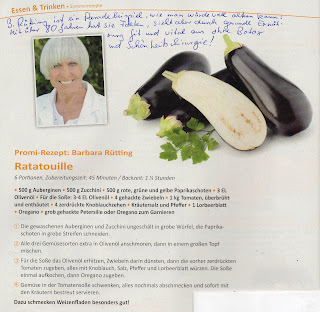 Essen & Trinken • Gemüserezepte
B. Rütting, ist ein Paradebeispiel, wie man würdevoll altern kann:
Mit über 80 Jahren hat sie Falten, sieht aber durch gesunde Ernäh-
rung fit und vital aus ohne Botox
und Schönheitschirurgie!
Promi-Rezept: Barbara Rütting
Ratatouille
6 Portionen, Zubereitungszeit: 45 Minuten / Backzeit: 1 ½ Stunden
• 500 g Auberginen • 500 g Zucchini • 500 g rote, grüne und gelbe Paprikaschoten • 3 EL
Olivenöl • Für die Soße: 3-4 EL Olivenöl • 4 gehackte Zwiebeln • 1 kg Tomaten, überbrüht
und enthäutet • 4 zerdrückte Knoblauchzehen • Kräutersalz und Pfeffer • 1 Lorbeerblatt
• Oregano • grob gehackte Petersilie oder Oregano zum Garnieren
① Die gewaschenen Auberginen und Zucchini ungeschält in grobe Würfel, die Paprika-
schoten in grobe Streifen schneiden.
② Alle drei Gemüsesorten extra in Olivenöl anschmoren, dann in einem großen Topf
mischen.
③ Für die Soße das Olivenöl erhitzen, Zwiebeln darin dünsten, dann die vorher zerdrückten
Tomaten zugeben, alles mit Knoblauch, Salz, Pfeffer und Lorbeerblatt würzen. Die Soße
einmal aufkochen, dann Oregano zugeben.
④ Gemüse in der Tomatensoße schwenken, alles nochmals abschmecken und sofort mit
den Kräutern bestreut servieren.
Dazu schmecken Weizenfladen besonders gut!